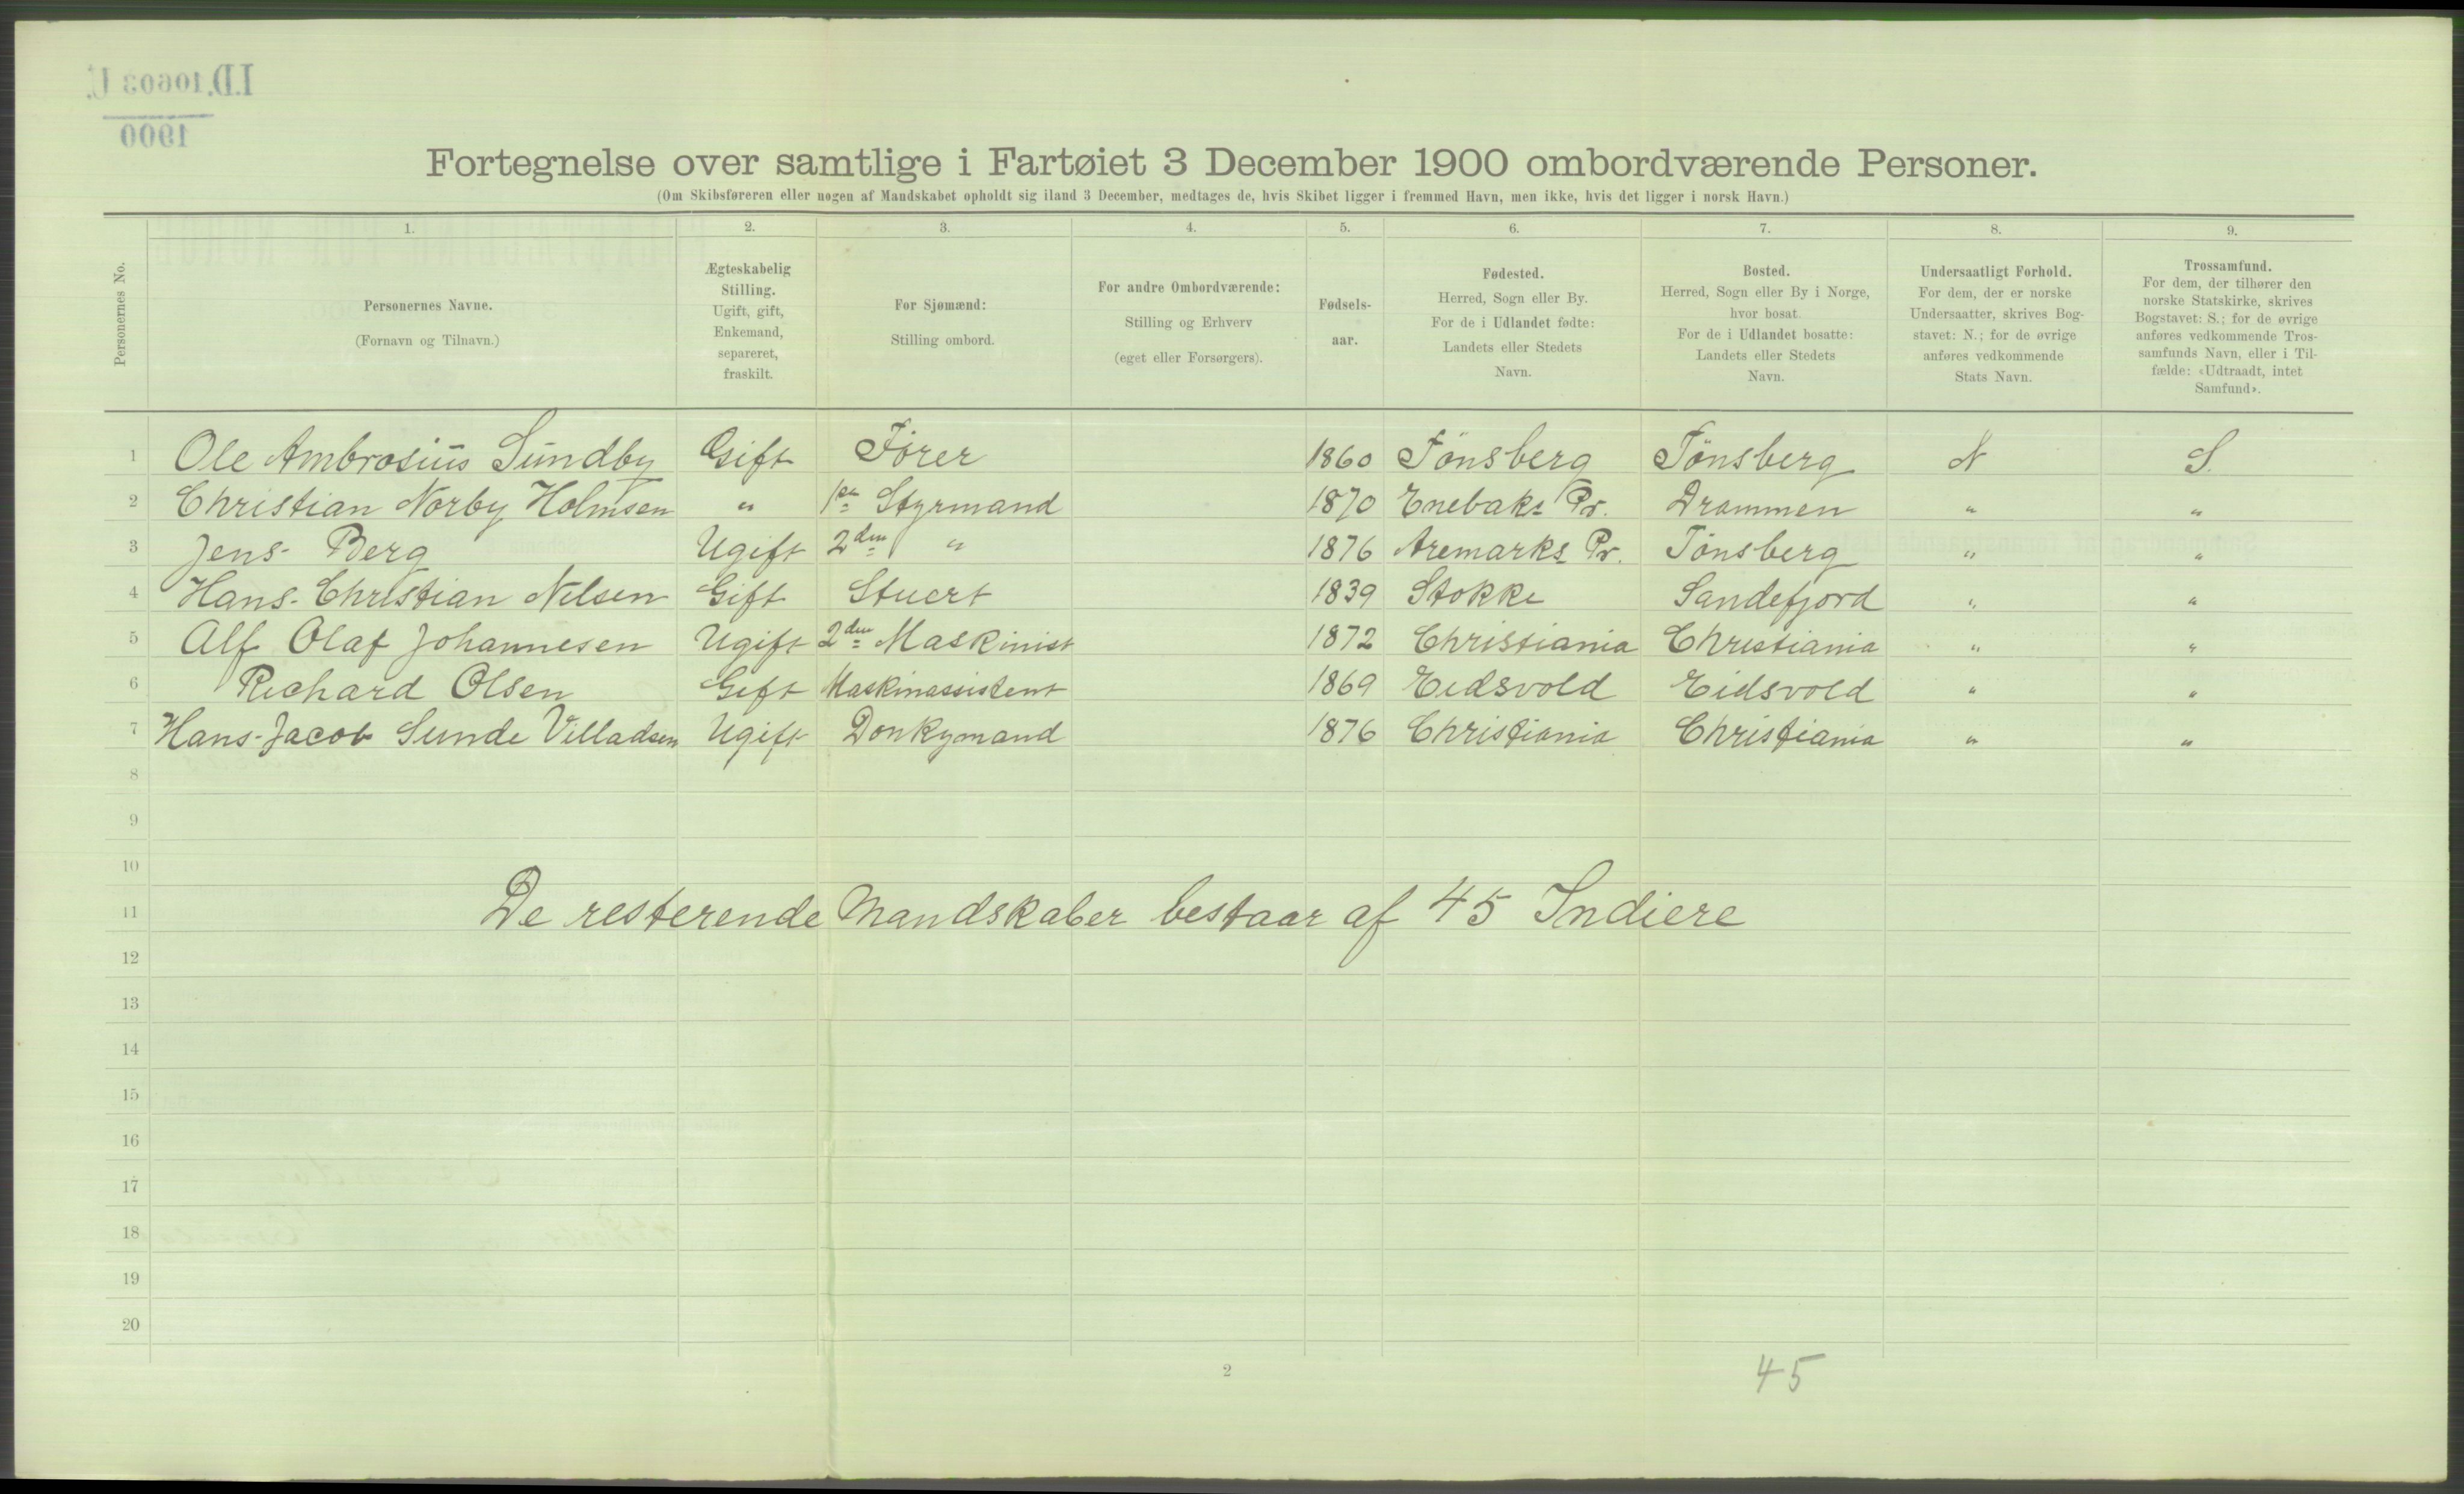 I.D. 10603 U.
1900
Fortegnelse over samtlige i Fartøiet 3 December 1900 ombordværende Personer.
(Om Skibsføreren eller nogen af Mandskabet opholdt sig iland 3 December, medtages de, hvis Skibet ligger i fremmed Havn, men ikke, hvis det ligger i norsk Havn.)
Personernes No.
1. 2. 3. 4. 5. 6. 7. 8. 9.
Personernes Navne.
(Fornavn og Tilnavn.)
Ægteskabelig
Stilling.
Ugift, gift,
Enkemand,
separeret,
fraskilt.
For Sjømænd:
Stilling ombord.
For andre Ombordværende:
Stilling og Erhverv
(eget eller Forsørgers).
Fødsels-
aar.
Fødested.
Herred, Sogn eller By.
For de i Udlandet fødte:
Landets eller Stedets
Navn.
Bosted.
Herred, Sogn eller By i Norge,
hvor bosat.
For de i Udlandet bosatte:
Landets eller Stedets
Navn.
Undersaatligt Forhold.
For dem, der er norske
Undersaatter, skrives Bog-
stavet: N.; for de øvrige
anføres vedkommende
Stats Navn.
Trossamfund.
For dem, der tilhører den
norske Statskirke, skrives
Bogstavet: S.; for de øvrige
anføres vedkommende Tros-
samfunds Navn, eller i Til-
fælde: «Udtraadt, intet
Samfund».
1 Ole Ambrosius Sundby Gift Förer 1860 Tönsberg Tönsberg N S.
2 Christian Norby Holmsen " 1ste Styrmand 1870 Enebaks Pr. Drammen " "
3 Jens Berg Ugift 2den " 1876 Aremarks Pr. Tönsberg " "
4 Hans Christian Nilsen Gift Stuert 1839 Stokke Sandefjord " "
5 Alf Olaf Johannesen Ugift 2den Maskinist 1872 Christiania Christiania " "
6 Richard Olsen Gift Maskinassistent 1869 Eidsvold Eidsvold " "
7 Hans-Jacob Sunde Villadsen Ugift Donkymand 1876 Christiania Christiania " "
8
9
10
11 De resterende Mandskaber bestaar af 45 Indiere
12
13
14
15
16
17
18
19
20
2
45